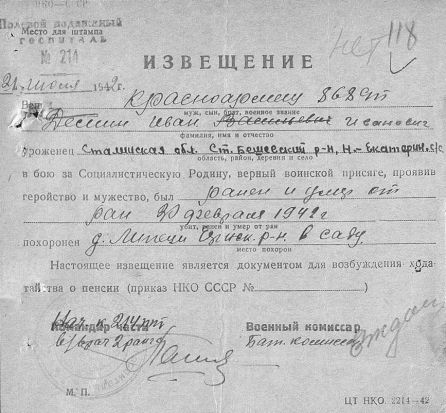 НКО—СССР
Полевой подвижный
Место для штампа
ГОСПИТАЛЬ
№ 214
нет 118
ИЗВЕЩЕНИЕ
1942г.
Ваш красноармеец 868 сп
муж, сын, брат, военное звание
Иван Васильевич Иванович
фамилия, имя и отчество
уроженец Сталинская обл. Ст. Бешевский р-н, Н.-Екатерин. с/с
область, район, деревня и село
в бою за Социалистическую Родину, верный воинской присяге, проявив
геройство и мужество, был ранен и умер от
ран 20 февраля 1942г
убит, ранен и умер от ран
похоронен д. Липеци р-н. в саду
место похорон
Настоящее извещение является документом для возбуждения хода-
тайства о пенсии (приказ НКО СССР №)
Нач. 214
Командир части Военный комиссар
в/врач 2 ранга Бат. комиссар
М. П.
ЦТ НКО. 2214—42